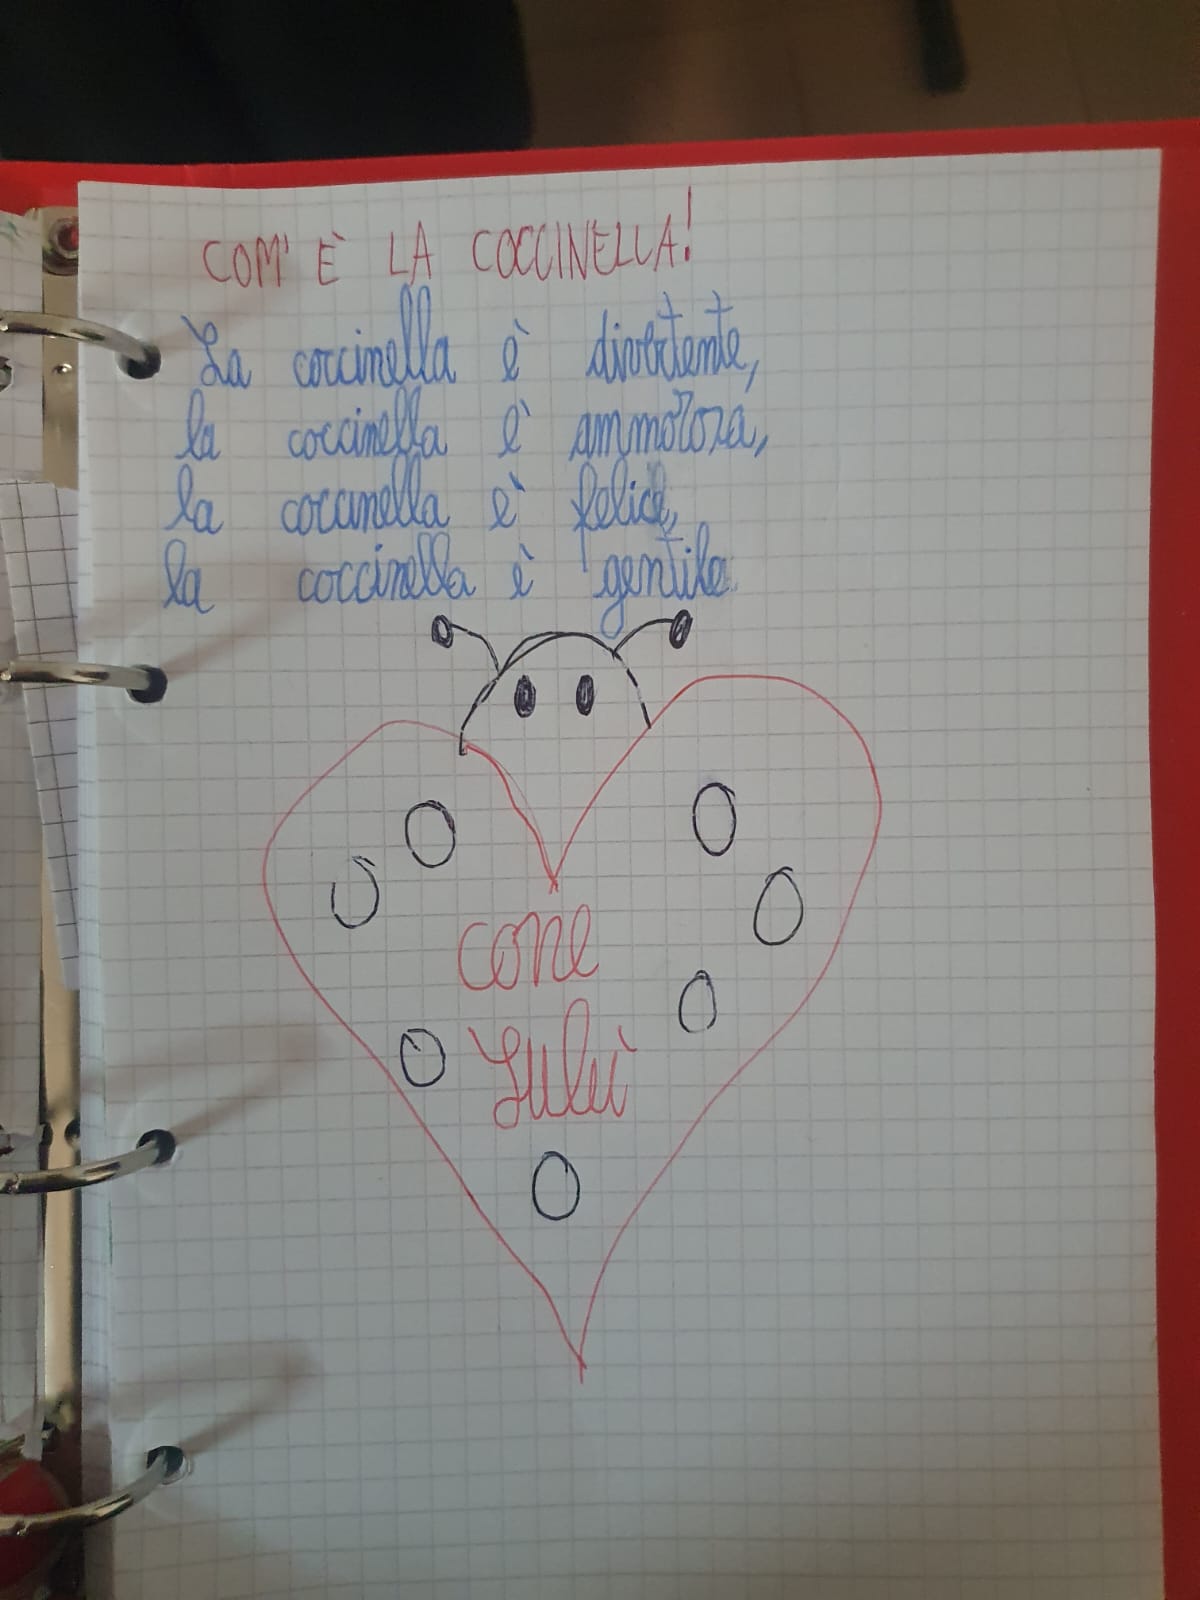 COM' È LA COCCINELLA!
La coccinella è divertente,
la coccinella è ammorosa,
la coccinella è felice,
la coccinella è gentile.
come
Lulù